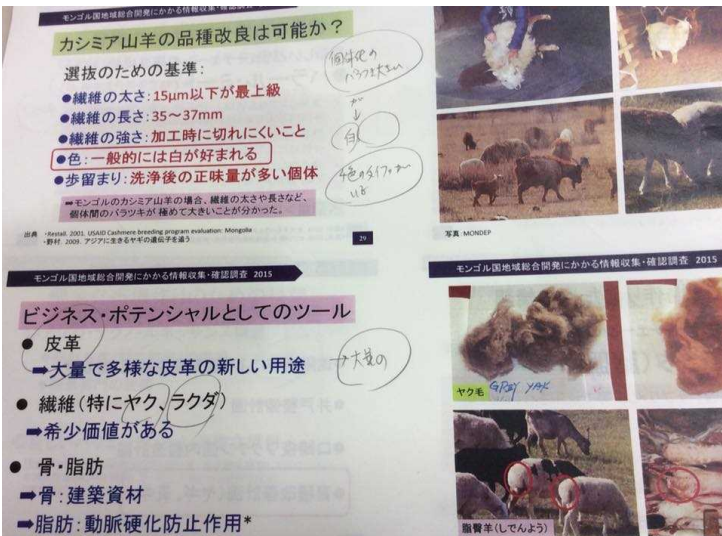 モンゴル国地域総合開発にかかる情報収集・確認調査
カシミア山羊の品種改良は可能か？
選抜のための基準：
●繊維の太さ：15μm以下が最上級
●繊維の長さ：35～37mm
●繊維の強さ：加工時に切れにくいこと
●色：一般的には白が好まれる
●歩留まり：洗浄後の正味量が多い個体
➡モンゴルのカシミア山羊の場合、繊維の太さや長さなど、
個体間のバラツキが極めて大きいことが分かった。
出典 ・Restall. 2001. USAID Cashmere breeding program evaluation: Mongolia
・野村. 2009. アジアに生きるヤギの遺伝子を追う
29
白
写真：MONDEP
モンゴル国地域総合開発にかかる情報収集・確認調査 2015
ビジネス・ポテンシャルとしてのツール
● 皮革
➡大量で多様な皮革の新しい用途
● 繊維（特にヤク、ラクダ）
➡希少価値がある
● 骨・脂肪
➡骨：建築資材
➡脂肪：動脈硬化防止作用*
→大量の
モンゴル国地域総合開発にかかる情報収集・確認調査 2015
ヤク毛
GREY YAK
脂臀羊（しでんよう）